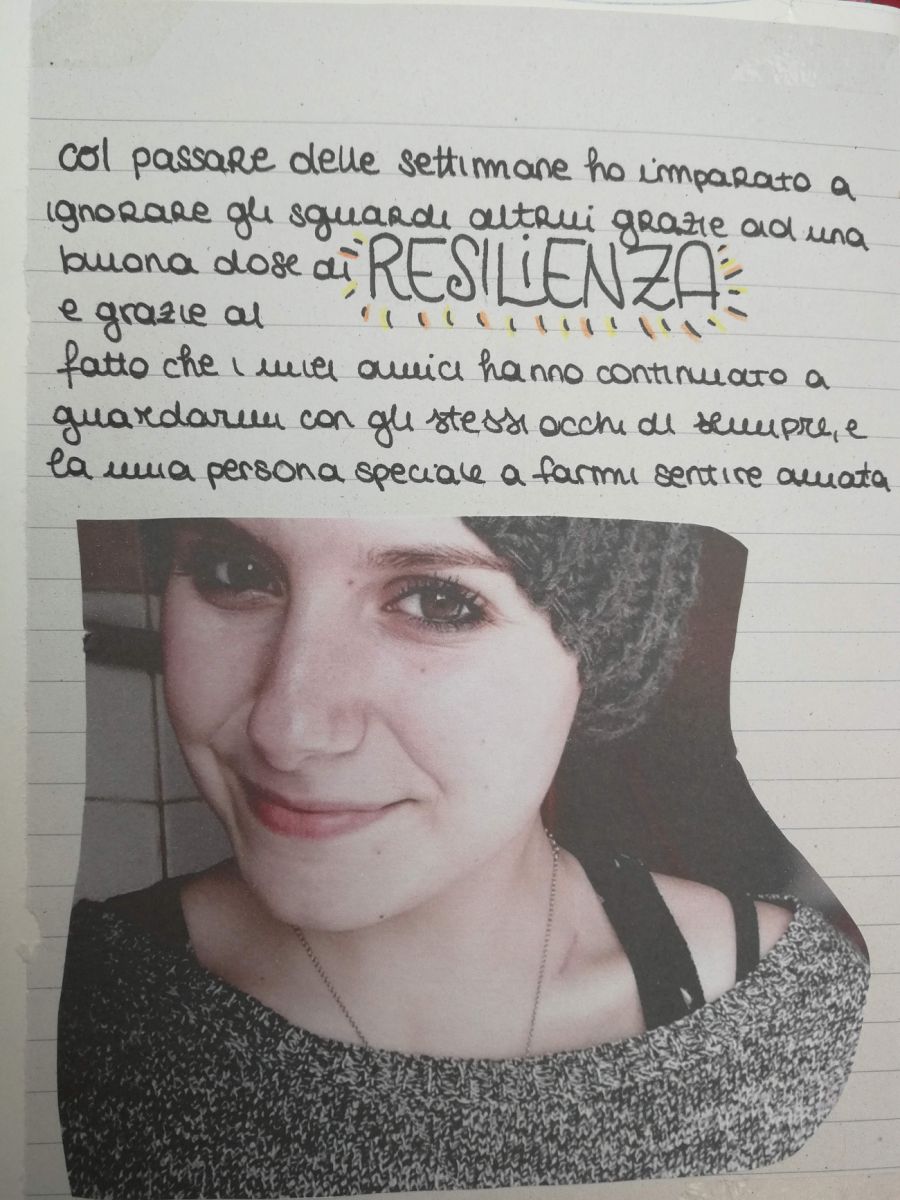 col passare delle settimane ho imparato a
ignorare gli sguardi altrui grazie ad una
buona dose di RESILIENZA
e grazie al
fatto che i miei amici hanno continuato a
guardarmi con gli stessi occhi di sempre, e
la mia persona speciale a farmi sentire amata